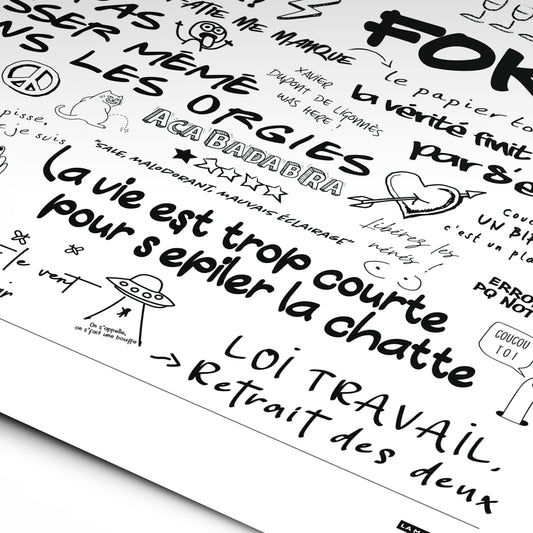 PAS
TIE ME MANQUE
FOR
SSER MÉMÉ
NS LES ORGIES
le papier to
XAVIER
DUPONT DE LIGONNÈS
WAS HERE !
la vérité finit
par s'e
pisse,
je suis
ACABADABRA
"SALE, MALODORANT, MAUVAIS ÉCLAIRAGE"
Libérez les
nénés !
COUC
UN BI
c'est un pla
La vie est trop courte
pour s'epiler la chatte
le vent
ir
ERRO
PQ NOT
COUCOU
TOI
On s'appelle,
on s'fait une bouffe
LOI TRAVAIL,
→ Retrait des deux
LA M